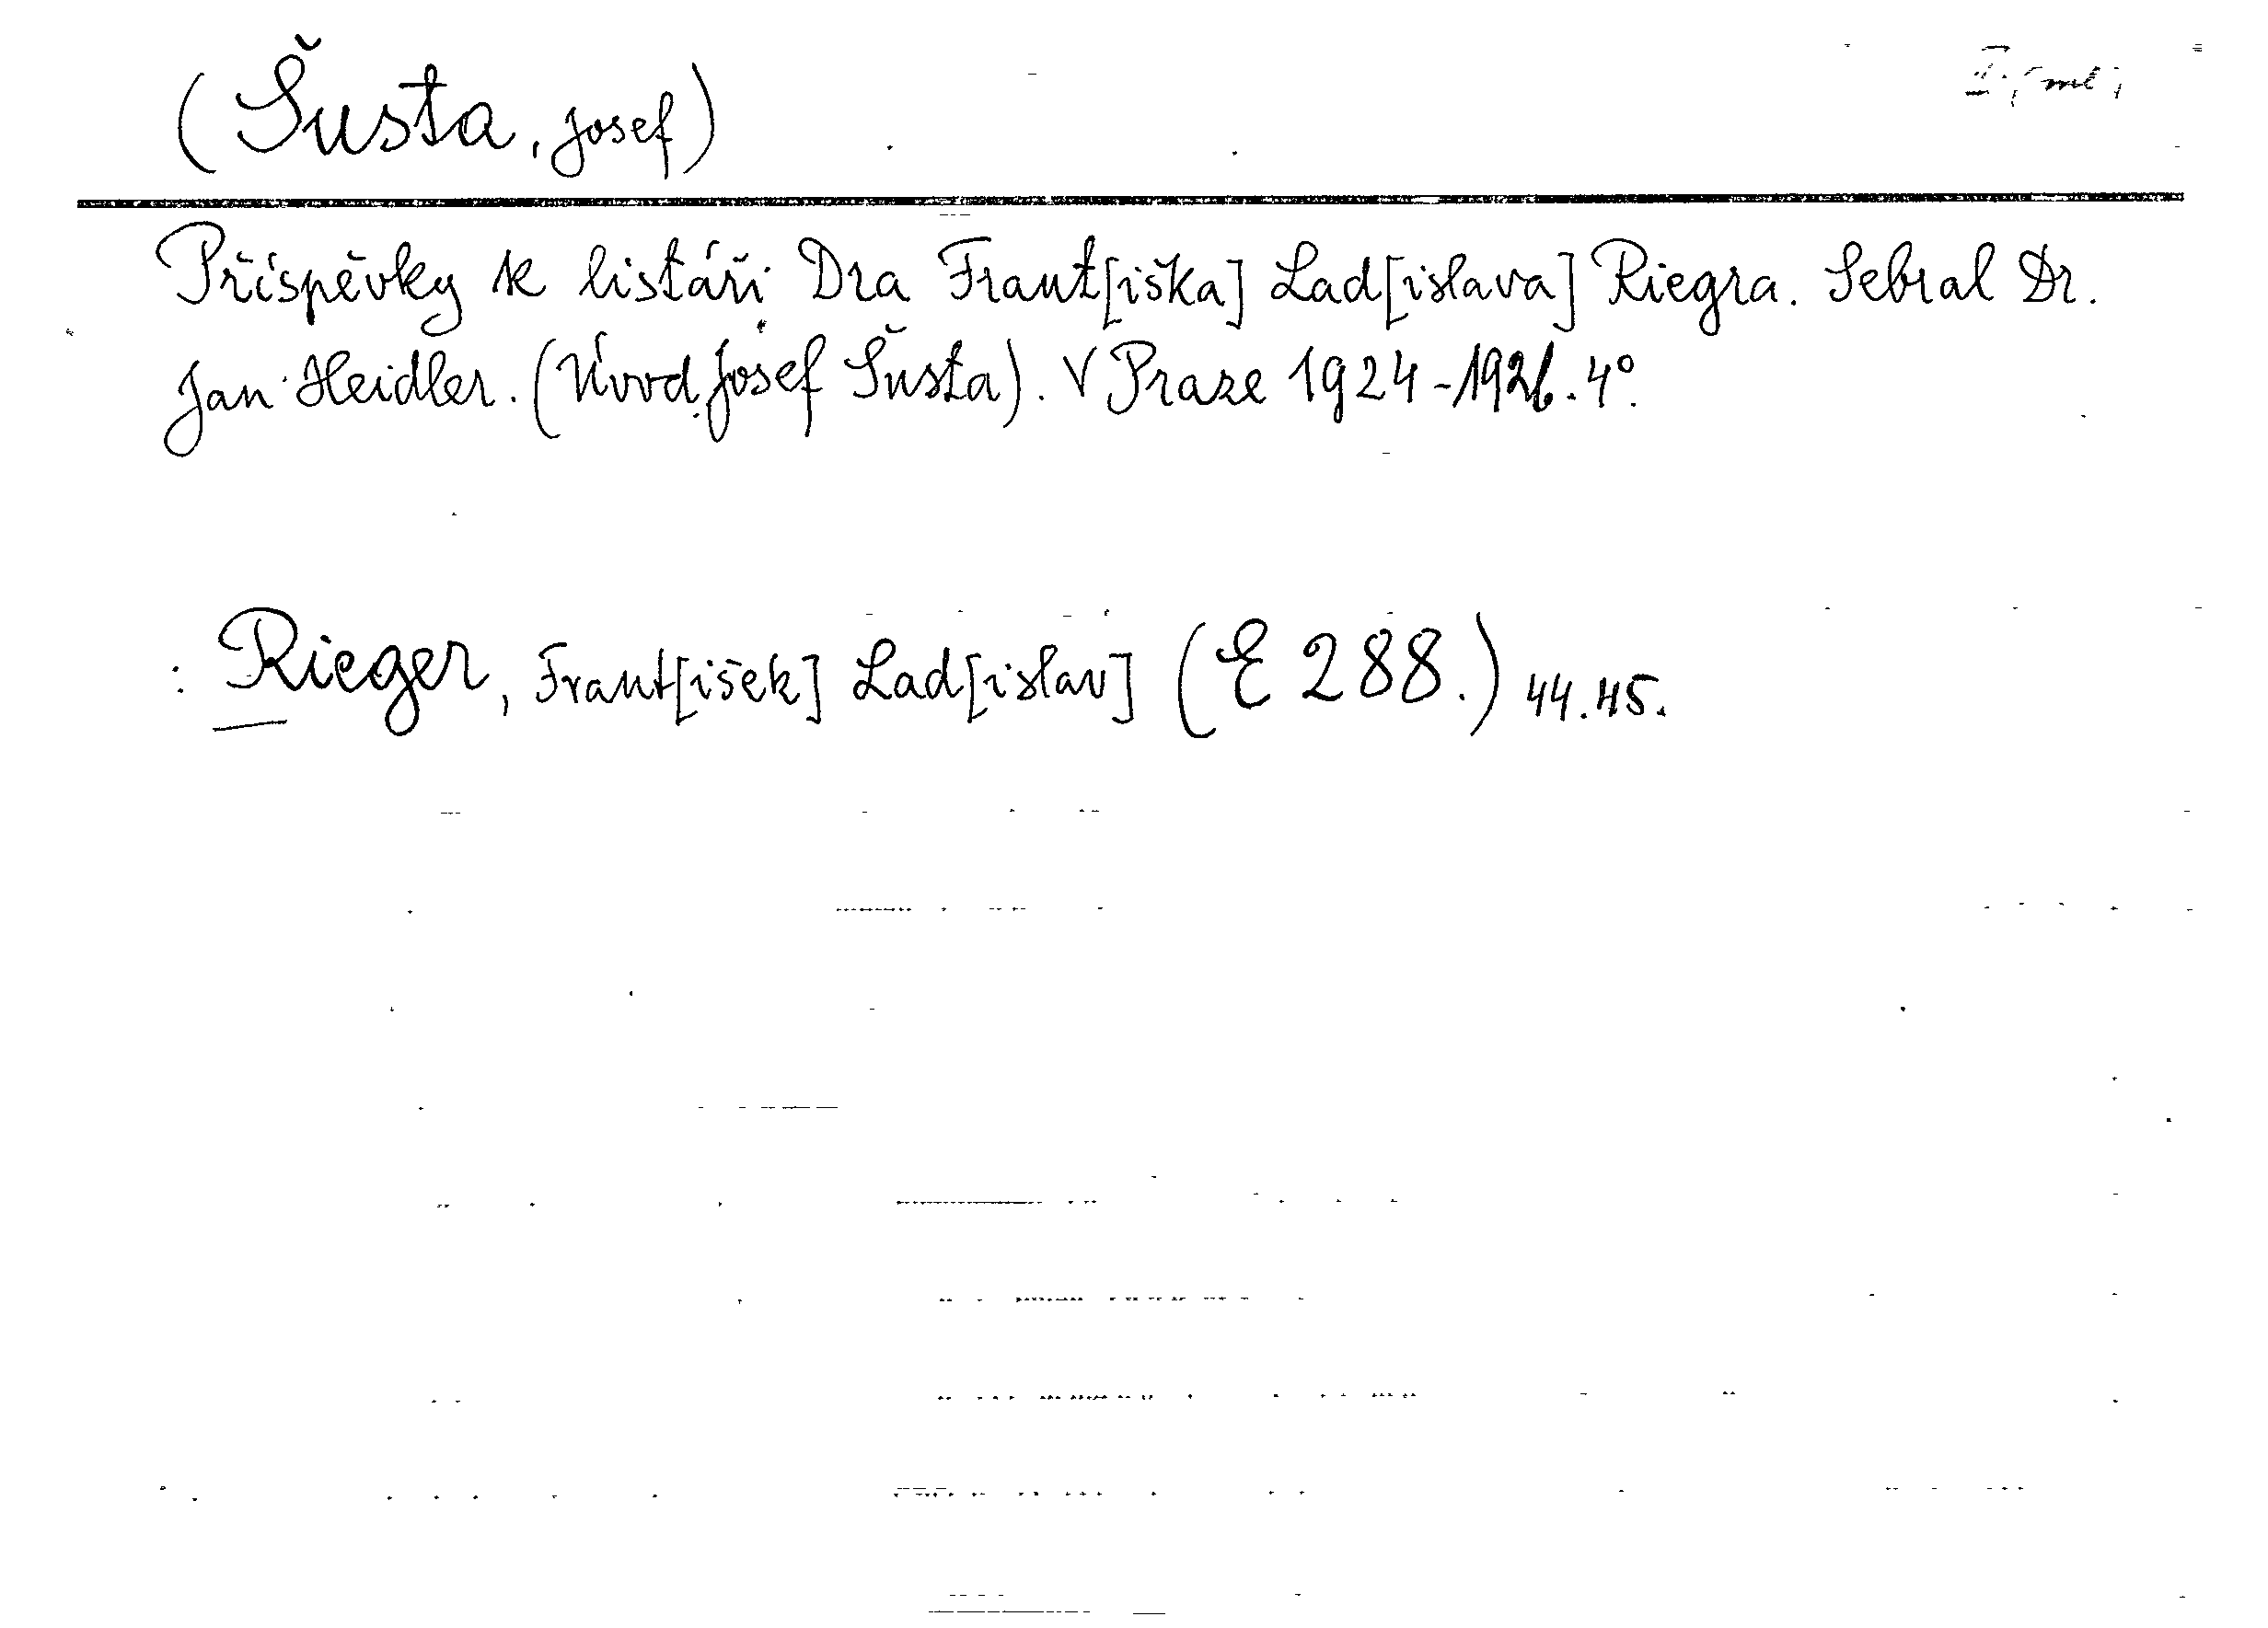 (Šusta, Josef)
Příspěvky k listáři Dra Frant[iška] Lad[islava] Riegra. Sebral Dr.
Jan Heidler. (Úvod Josef Šusta). V Praze 1924-1926. 4°.
: Rieger, Frant[išek] Lad[islav] (E 288.) 44.45.